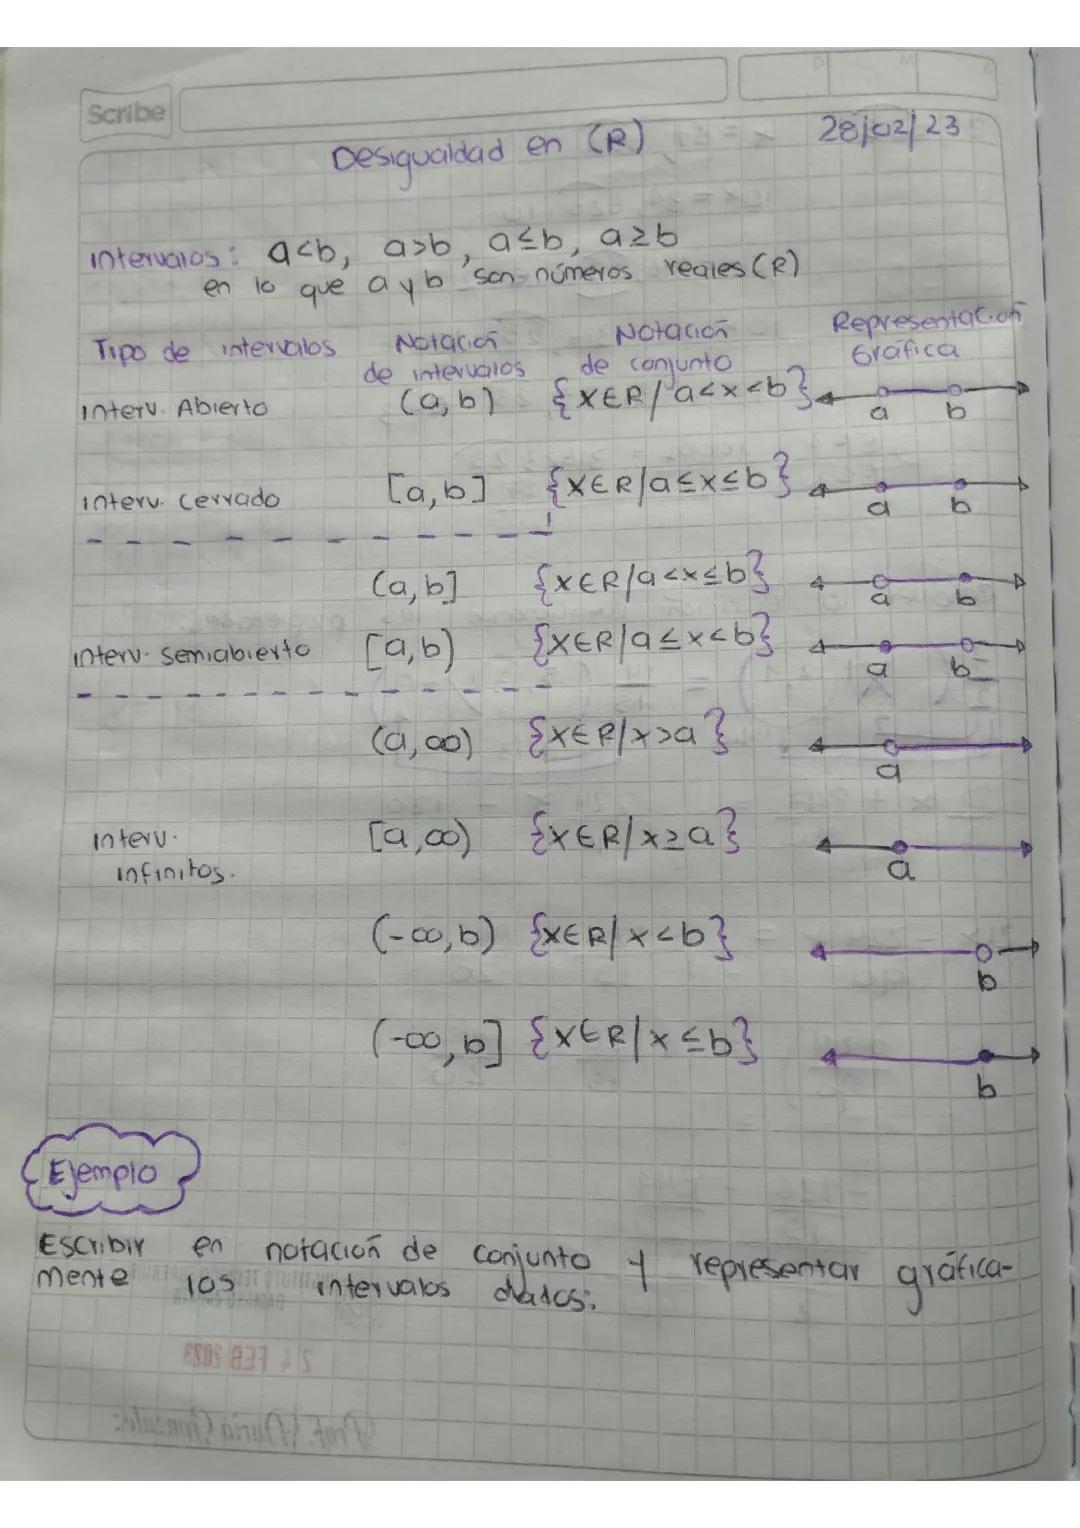 Scribe
D M A
Desigualdad en (R) 28/02/23
Intervalos: a<b, a>b, a≤b, a≥b
en lo que a y b son números reales (R)
Tipo de intervalos Notación de intervalos Notación de conjunto Representación Gráfica
Interv. Abierto (a,b) {x∈R/a<x<b} a b
Interv. Cerrado [a,b] {x∈R/a≤x≤b} a b
(a,b] {x∈R/a<x≤b} a b
Interv. Semiabierto [a,b) {x∈R/a≤x<b} a b
(a,∞) {x∈R/x>a} a
Interv. infinitos. [a,∞) {x∈R/x≥a} a
(-∞,b) {x∈R/x<b} b
(-∞,b] {x∈R/x≤b} b
Ejemplo
Escribir en notación de conjunto y representar gráfica-
mente los intervalos dados:
24 FEB 2023